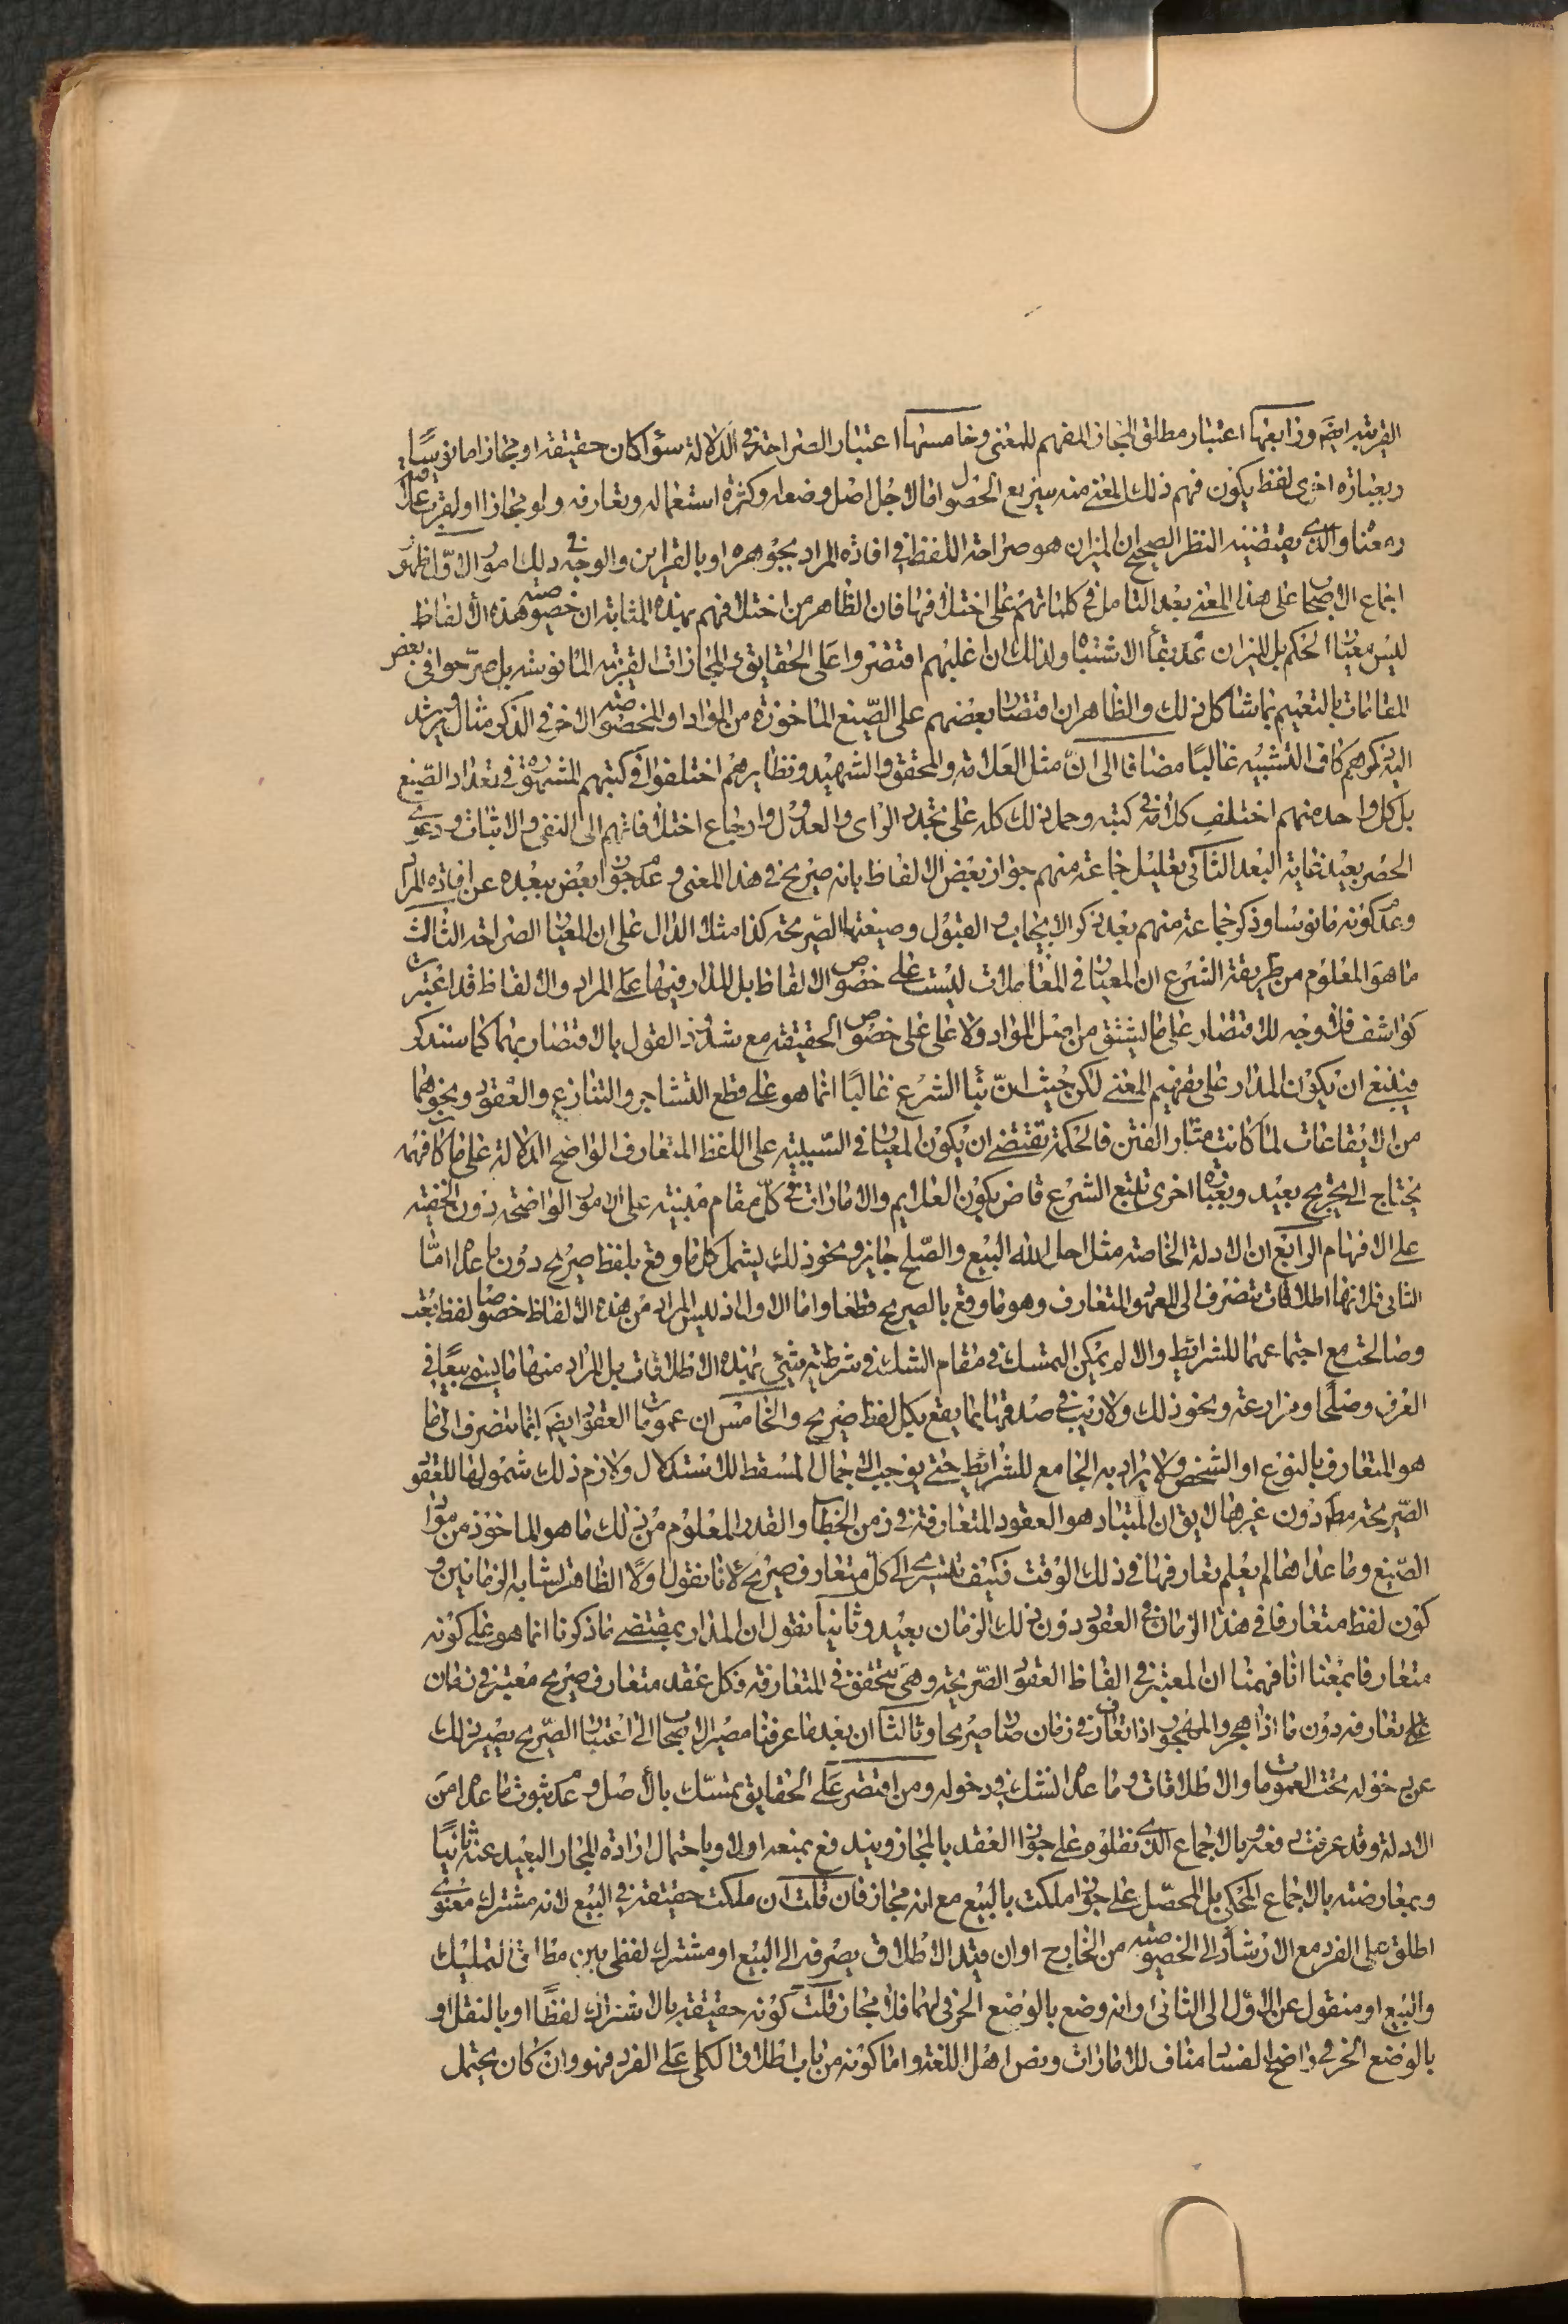 القريبة ايضَ ورابعها اعتبار مطلق المجاز المفهم للمعنى وخامسها اعتبار الصراحة فى الدلالة سواء كان حقيقة او مجازا مانوسا
وبعبارة اخرى لفظ يكون فهم ذلك المعنى منه سريع الحصول اما لاجل اصل وضعه وكثرة استعماله وتعارفه ولو مجازا او لقرب علاقته
معنا والذى يقتضيه النظر الصحيح ان الميزان هو صراحة اللفظ فى افادة المراد بجوهره او بالقراين والوجه فى ذلك امور الاول ظهور
اجماع الاصحاب على هذا المعنى بعد التامل فى كلماتهم على اختلافها فان الظاهر من اختلافهم بهذه المثابة ان خصوصية هذه الالفاظ
ليس معيار الحكم بل الميزان عدم بقاء الاشتباه ولذلك ان اغلبهم اقتصروا على الحقايق والمجازات القريبة المانوسة بل صرحوا فى بعض
المقامات بالتعميم بما شاكل ذلك والظاهر ان اقتصار بعضهم على الصيغ الماخوذة من المواد او المخصوصة الاخر فى الذكر مثال ويرشد
اليه ذكرهم كاف التشبيه غالبًا مضافا الى انّ مثل العلامة والمحقق والشهيد ونظايرهم اختلفوا فى كتبهم المشهورة فى تعداد الصيغ
بل كل واحد منهم اختلف كلامه فى كتبه وحمل ذلك كله على تجدد الراى والعدول وارجاع اختلافاتهم الى النفى والاثبات ودعوى
الحصر بعيد غاية البعد الثانى تعليل جماعة منهم جواز بعض الالفاظ بانه صريح فى هذا المعنى وعدم جواز بعض ببعده عن افادة المراد
وعدم كونه مانوسا وذكر جماعة منهم بعد ذكر الايجاب والقبول وصيغتها الصريحة كذا مثلا الدال على ان المعيار الصراحة الثالث
ما هو المعلوم من طريقة الشرع ان المعيار فى المعاملات ليست على خصوص الالفاظ بل المدار فيها على المراد والالفاظ قد اعتبرت
كواشف فلا وجه للاقتصار على ما يشتق من اصل المواد ولا على على خصوص الحقيقة مع شذوذ القول بالاقتصار بهما كما سنذكر
فينبغى ان يكون المدار على تفهيم المعنى لكن حيث انّ بناء الشرع غالبًا انما هو على قطع التشاجر والتنازع والعقود ونحوهما
من الايقاعات لما كانت مثار الفتن فالحكمة تقتضى ان يكون المعيار فى السببية على اللفظ المتعارف الواضح الدلالة على ما كان فهمه
يحتاج الى تخريج بعيد وبعبارة اخرى تتبع الشرع قاض بكون العلايم والامارات فى كلّ مقام مبنية على الامور الواضحة دون الخفية
على الافهام الرابع ان الادلة الخاصة مثل احل الله البيع والصلح جايز ونحو ذلك يشمل كل ما وقع بلفظ صريح دون ما عداه امّا
الثانى فلانها اطلاقات تنصرف الى المعهود المتعارف وهو ما وقع بالصريح قطعا واما الاول اذ ليس المراد من هذه الالفاظ خصوصا لفظ بعت
وصالحت مع اجتماعهما للشرائط والا لم يمكن التمسك فى مقام الشك فى شرطية شئ بهذه الاطلاقات بل المراد منها ما يسمى بيعًا فى
العرف وصلحًا ومزارعة ونحو ذلك ولا ريب فى صدقها بما يقع بكل لفظ صريح والخامس ان عمومات العقود ايضَ انما تنصرف الى ما
هو المتعارف بالنوع او الشخص ولا يراد به الجامع للشرائط حتى يوجب الاجمال المسقط للاستدلال ولازم ذلك شمولها للعقود
الصّريحة مطَ دون غيرها لا يق ان المتبادر هو العقود المتعارفة فى زمن الخطاب والقدر المعلوم من ذلك ما هو الماخوذ من مواد
الصّيغ وما عداها لم يعلم تعارفها فى ذلك الوقت فكيف تسرى الى كلّ متعارف صريح لانا نقول اولًا الظاهر تشابه الزمانين و
كون لفظ متعارفا فى هذا الزمان فى العقود دون ذلك الزمان بعيد وثانيا نقول ان المدار بمقتضى ما ذكرنا انما هو على كونه
متعارفا بمعنا انا فهمنا ان المعتبر فى الفاظ العقود الصّريحة وهى تتحقق فى المتعارفة فكل عقد متعارف صريح معتبر فى زمان
على تعارفه دون ما اذا هجر والمهجور اذا تعارف فى زمان صار صريحا وثالثا ان بعد ما عرفنا مصير الاصحاب الى اعتبار الصّريح يصير ذلك
عن دخوله تحت العمومات والاطلاقات وما عداه الشك فى دخوله ومن اقتصر على الحقايق تمسّك بالاصل وعدم ثبوت ما عداه من
الادلة وقد عرفت دفعه وبالاجماع الذى نقلوه على جواز العقد بالمجاز ويندفع بمنعه اولا وباحتمال ارادة المجاز البعيد عنه ثانيًا
وبمعارضته بالاجماع المحكى بل المحصّل على جواز ملكت بالبيع مع انه مجاز فان قلت ان ملكت حقيقة فى البيع لانه مشترك معنوى
اطلق على الفرد مع الارشاد الى الخصوصية من الخارج او ان قيد الاطلاق يصرفه الى البيع او مشترك لفظى بين مطلق التمليك
والبيع او منقول عن الاول الى الثانى او انه وضع بالوضع الحرفى لهما فلا مجاز قلت كونه حقيقة بالاشتراك لفظًا او بالنقل او
بالوضع الحرفى واضح الفساد مناف للامارات ونص اهل اللغة واما كونه من باب اطلاق الكلى على الفرد فهو وان كان يحتمل